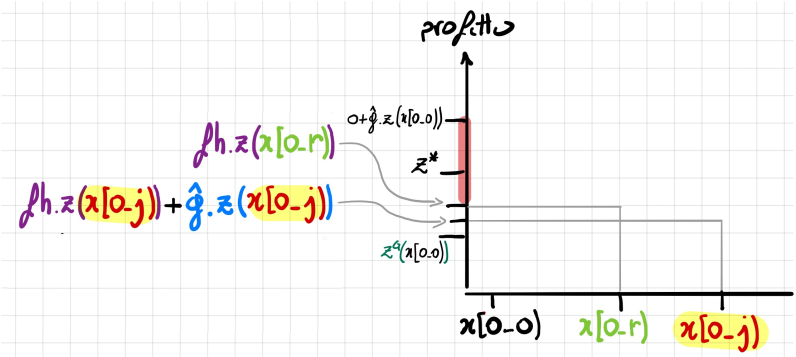 profitto
0+ĝ.z(x[0_0))
fh.z(x[0_r))
z*
fh.z(x[0_j))+ĝ.z(x[0_j))
z^G(x[0_0))
x[0_0) x[0_r) x[0_j)